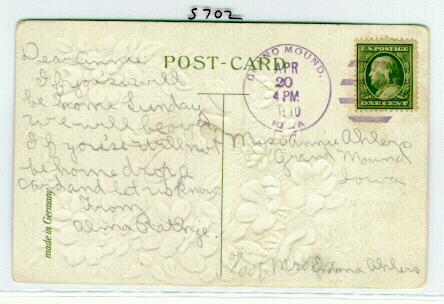 5702
POST-CARD
GRAND MOUND,
APR
20
4 PM
1910
IOWA
U.S. POSTAGE
ONE CENT
Dear Annie
If you'se will
be home Sunday
we will be over
If you'se will not
be home drop a
card and let us know
From
Alma Rathje.
Miss Annie Ahlers
Grand Mound
Iowa
c/o of Mrs Emma Ahlers
made in Germany